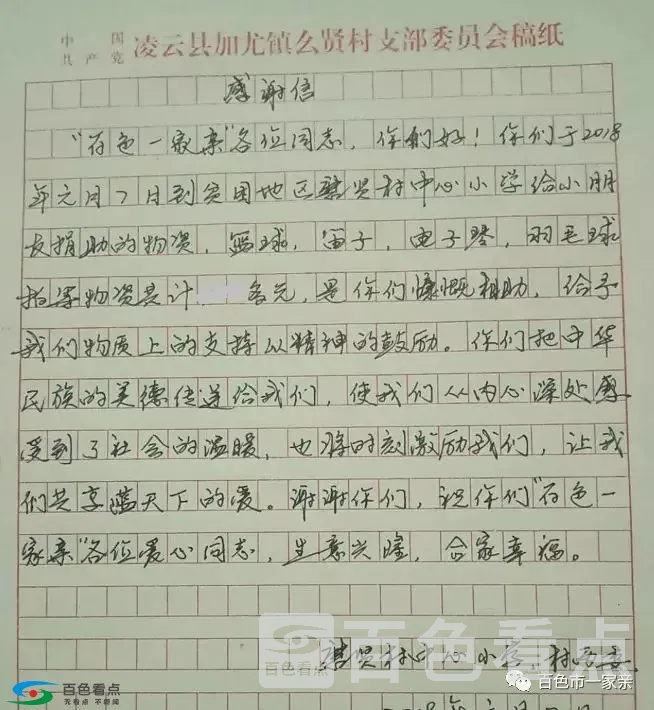 中国
共产党 凌云县加尤镇么贤村支部委员会稿纸
感谢信
"百色一家亲"各位同志,你们好!你们于2018
年元月7日到贫困地区 贤村中心小学给小朋
友捐助的物资,篮球,笛子,电子琴,羽毛球
拍等物资共计 多元,是你们慷慨相助,给予
我们物质上的支持以精神的鼓励。你们把中华
民族的美德传递给我们,使我们从内心深处感
受到了社会的温暖,也将时刻激励我们,让我
们共享蓝天下的爱。谢谢你们,祝你们"百色一
家亲"各位爱心同志,生意兴隆,合家幸福。
贤村中心小学,村两委
百色看点
百色看点
无看点 不新闻
百色市一家亲
2018年元月 日